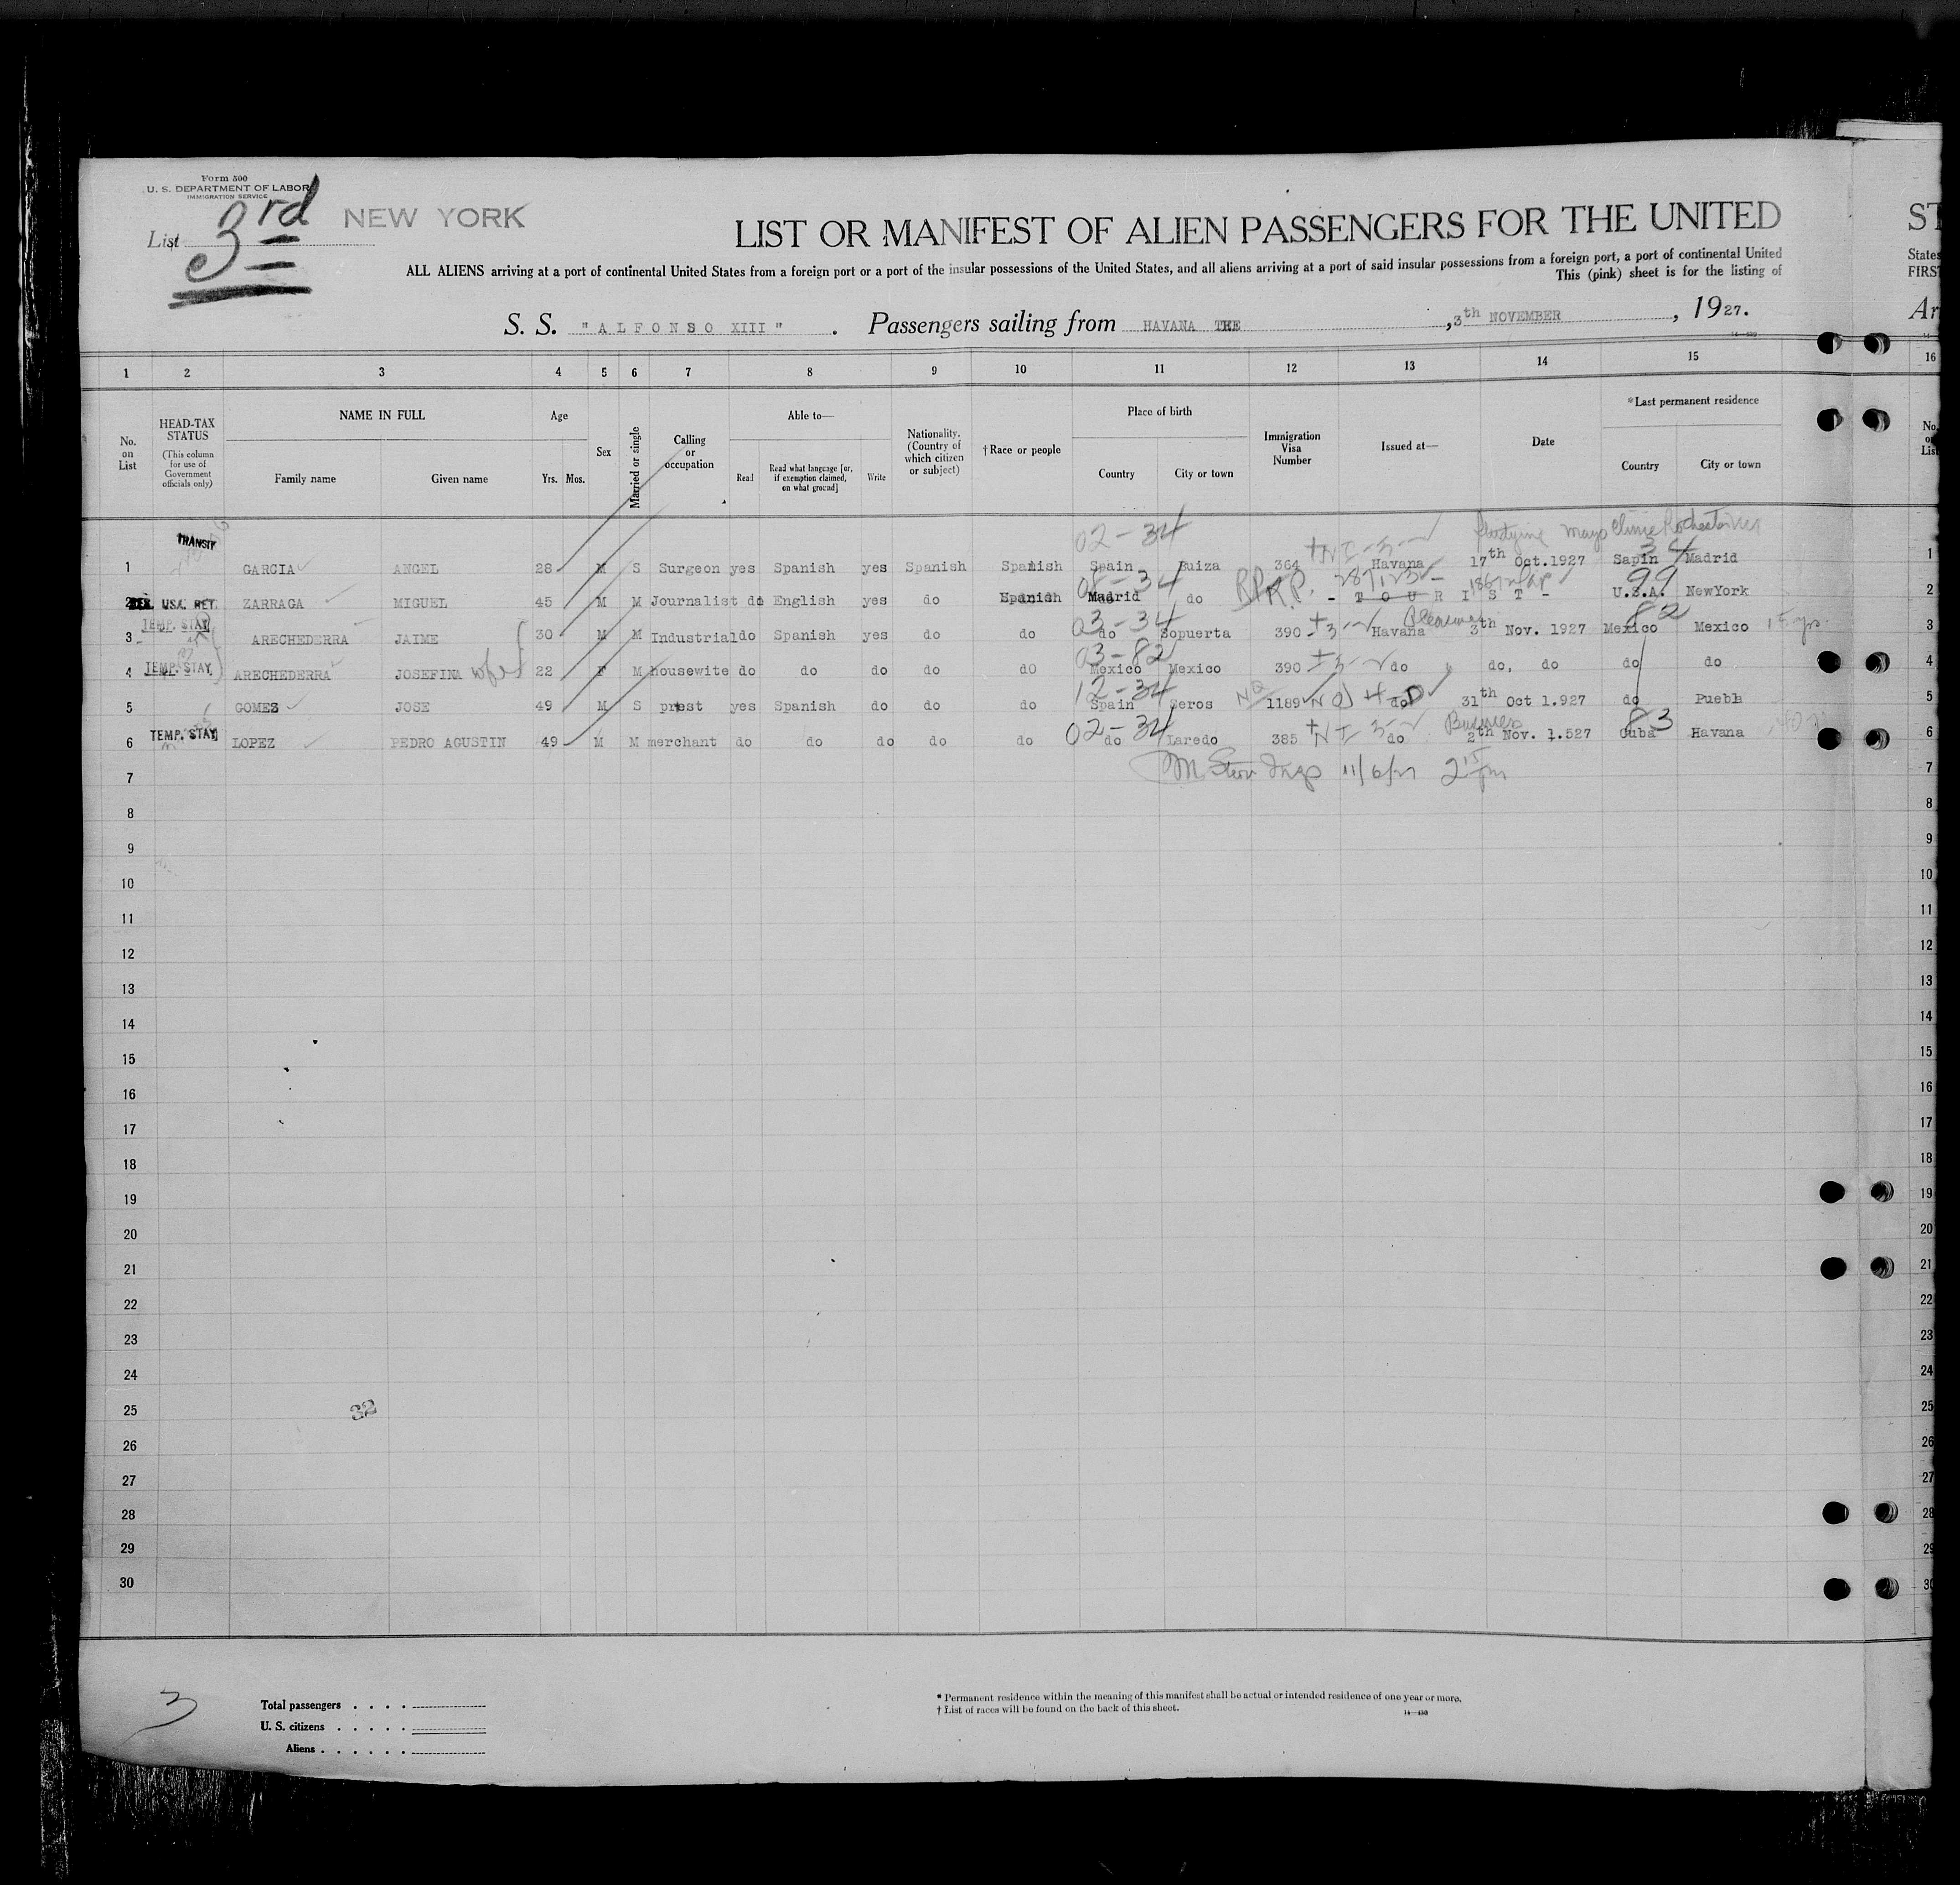 Form 500
U. S. DEPARTMENT OF LABOR
IMMIGRATION SERVICE
List 3rd NEW YORK
LIST OR MANIFEST OF ALIEN PASSENGERS FOR THE UNITED ST
ALL ALIENS arriving at a port of continental United States from a foreign port or a port of the insular possessions of the United States, and all aliens arriving at a port of said insular possessions from a foreign port, a port of continental United States
This (pink) sheet is for the listing of FIRST
S. S. "ALFONSO XIII". Passengers sailing from HAVANA THE, 3th NOVEMBER, 1927. Ar
14-439
1 2 3 4 5 6 7 8 9 10 11 12 13 14 15 16
No. on List
HEAD-TAX STATUS (This column for use of Government officials only)
NAME IN FULL Family name Given name
Age Yrs. Mos.
Sex
Married or single
Calling or occupation
Able to— Read Read what language [or, if exemption claimed, on what ground] Write
Nationality. (Country of which citizen or subject)
†Race or people
Place of birth Country City or town
Immigration Visa Number
Issued at—
Date
*Last permanent residence Country City or town
No. on List
02-34 +NI-3- studying Mayo Clinic 34
1 TRANSIT GARCIA ANGEL 28 M S Surgeon yes Spanish yes Spanish Spanish Spain Ruiza 364 Havana 17th Oct.1927 Sapin Madrid 1
08-34 R.P. 99
2 USA. RET. ZARRAGA MIGUEL 45 M M Journalist do English yes do Spanish Madrid do - T O U R I S T - U.S.A. NewYork 2
TEMP. STAY 03-34 Pleasure 82
3 ARECHEDERRA JAIME 30 M M Industrial do Spanish yes do do do Sopuerta 390 +3- Havana 3th Nov. 1927 Mexico Mexico 15 yrs. 3
03-82
4 TEMP. STAY ARECHEDERRA JOSEFINA wife 22 F M housewite do do do do dO Mexico Mexico 390 +3- do do, do do do 4
12-34
5 GOMES JOSE 49 M S prest yes Spanish do do do Spain Seros 1189 NQ do 31th Oct 1.927 do Puebla 5
02-34 Business 83
6 TEMP. STAY LOPEZ PEDRO AGUSTIN 49 M M merchant do do do do do do Laredo 385 +NI 3- do 2th Nov. 1.527 Cuba Havana 6
7 11/6/27 7
8 8
9 9
10 10
11 11
12 12
13 13
14 14
15 15
16 16
17 17
18 18
19 19
20 20
21 21
22 22
23 23
24 24
25 32 25
26 26
27 27
28 28
29 29
30 30
3
Total passengers . . . .
U. S. citizens . . . . .
Aliens . . . . . .
* Permanent residence within the meaning of this manifest shall be actual or intended residence of one year or more.
† List of races will be found on the back of this sheet.
14-439